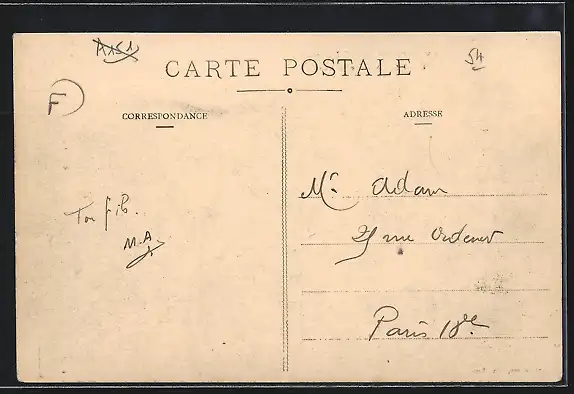 A151
54
CARTE POSTALE
F
CORRESPONDANCE
ADRESSE
Ton fils.
M.A
Mr Adam
rue Ordener
Paris 18e